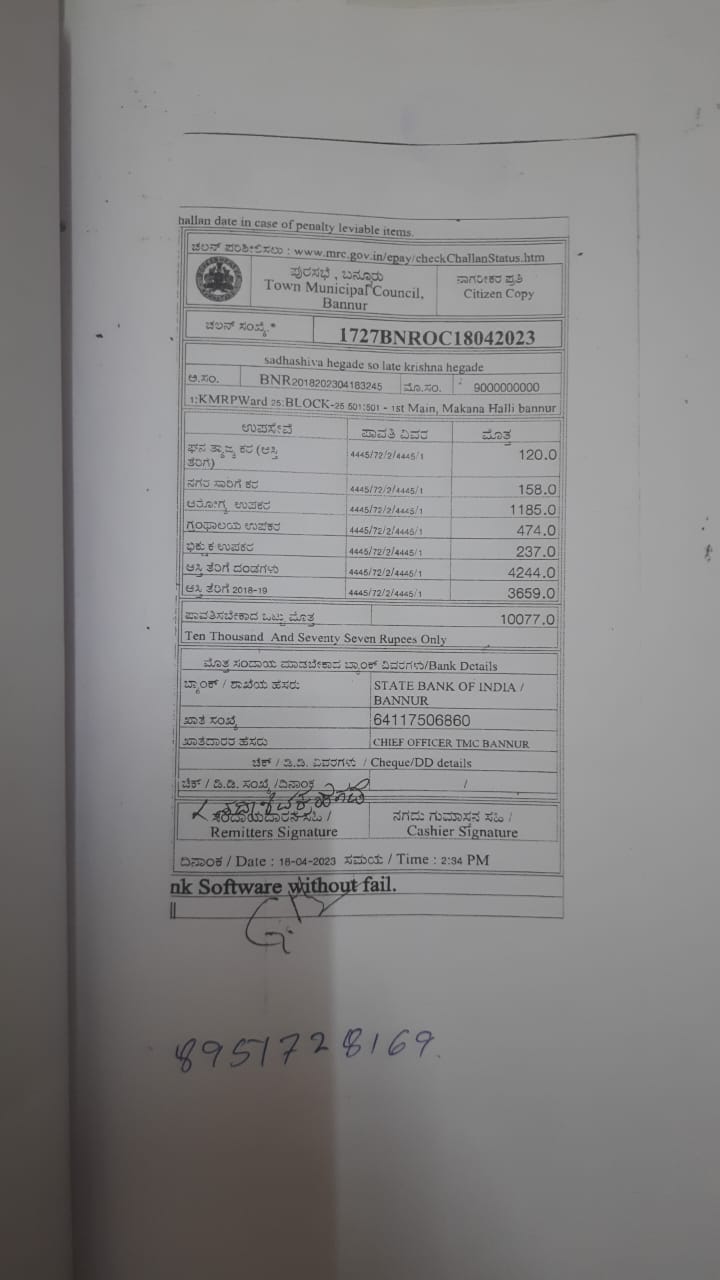 hallan date in case of penalty leviable items.
ಚಲನ್ ಪರಿಶೀಲಿಸಲು : www.mrc.gov.in/epay/checkChallanStatus.htm
ಪುರಸಭೆ , ಬನ್ನೂರು
Town Municipal Council,
Bannur
ನಾಗರೀಕರ ಪ್ರತಿ
Citizen Copy
ಚಲನ್ ಸಂಖ್ಯೆ.* 1727BNROC18042023
sadhashiva hegade so late krishna hegade
ಆ.ಸಂ. BNR2018202304183245 ಮೊ.ಸಂ. 9000000000
1:KMRPWard 25:BLOCK-25 501:501 - 1st Main, Makana Halli bannur
ಉಪಸೇವೆ ಪಾವತಿ ವಿವರ ಮೊತ್ತ
ಘನ ತ್ಯಾಜ್ಯ ಕರ (ಆಸ್ತಿ ತೆರಿಗೆ) 4445/72/2/4445/1 120.0
ನಗರ ಸಾರಿಗೆ ಕರ 4445/72/2/4445/1 158.0
ಆರೋಗ್ಯ ಉಪಕರ 4445/72/2/4445/1 1185.0
ಗ್ರಂಥಾಲಯ ಉಪಕರ 4445/72/2/4445/1 474.0
ಭಿಕ್ಷುಕ ಉಪಕರ 4445/72/2/4445/1 237.0
ಆಸ್ತಿ ತೆರಿಗೆ ದಂಡಗಳು 4445/72/2/4445/1 4244.0
ಆಸ್ತಿ ತೆರಿಗೆ 2018-19 4445/72/2/4445/1 3659.0
ಪಾವತಿಸಬೇಕಾದ ಒಟ್ಟು ಮೊತ್ತ 10077.0
Ten Thousand And Seventy Seven Rupees Only
ಮೊತ್ತ ಸಂದಾಯ ಮಾಡಬೇಕಾದ ಬ್ಯಾಂಕ್ ವಿವರಗಳು/Bank Details
ಬ್ಯಾಂಕ್ / ಶಾಖೆಯ ಹೆಸರು STATE BANK OF INDIA /
BANNUR
ಖಾತೆ ಸಂಖ್ಯೆ 64117506860
ಖಾತೆದಾರರ ಹೆಸರು CHIEF OFFICER TMC BANNUR
ಚೆಕ್ / ಡಿ.ಡಿ. ವಿವರಗಳು / Cheque/DD details
ಚೆಕ್ / ಡಿ.ಡಿ. ಸಂಖ್ಯೆ /ದಿನಾಂಕ /
ಸಂದಾಯದಾರನ ಸಹಿ /
Remitters Signature
ನಗದು ಗುಮಾಸ್ತನ ಸಹಿ /
Cashier Signature
ದಿನಾಂಕ / Date : 18-04-2023 ಸಮಯ / Time : 2:34 PM
nk Software without fail.
8951728169